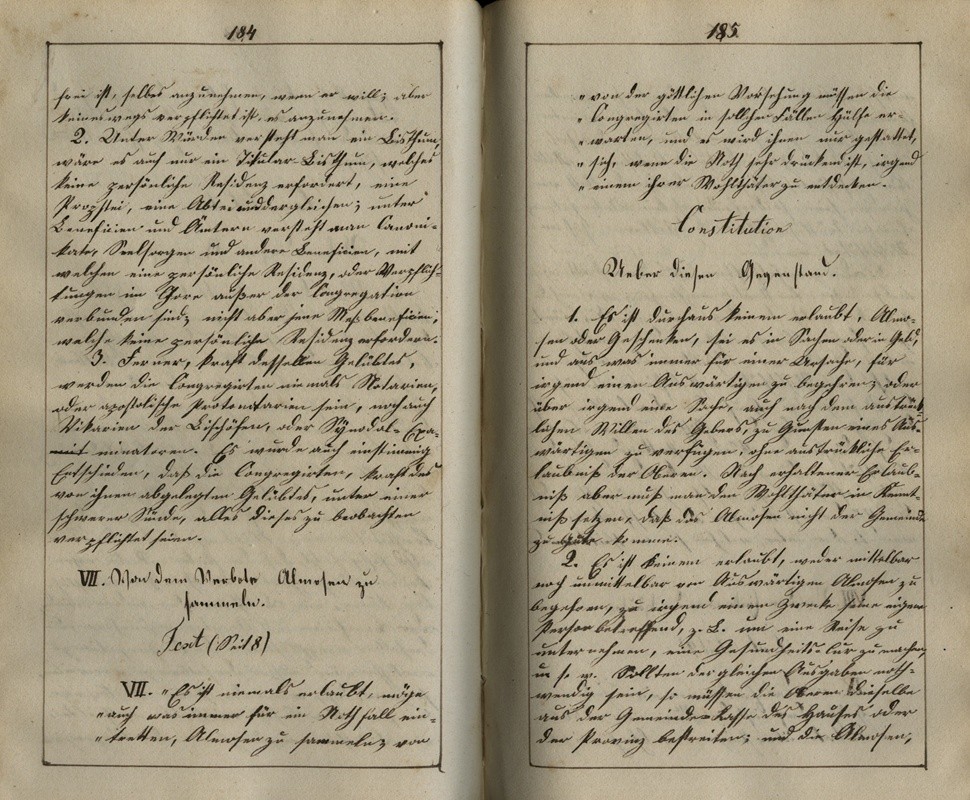 184
frei ist, selbes anzunehmen, wenn er will; aber
keineswegs verpflichtet ist es anzunehmen.
2. Unter Würden versteht man ein Bisthum,
wäre es auch nur ein Titular-Bisthum, welches
keine persönliche Residenz erfordert, eine
Propstei, eine Abtei und dergleichen; unter
Beneficien und Ämtern versteht man Canoni-
kate, Seelsorgen und andere Beneficien, mit
welchen eine persönliche Residenz, oder Verpflich-
tungen im Chore außer der Congregation
verbunden sind; nicht aber jene Meßbeneficien,
welche keine persönliche Residenz erfordern.
3. Ferner, kraft desselben Gelübdes,
werden die Congregirten niemals Notarien,
oder apostolische Protonotarien sein, noch auch
Vikarien der Bischöfen, oder Synodal-Exa-
minatoren. Es wurde auch einstimmig
Entschieden, daß die Congregirten, kraft des
von ihnen abgelegten Gelübdes, unter einer
schweren Sünde, alles dieses zu beobachten
verpflichtet seien.
VII. Von dem Verbote Almosen zu
sammeln.
Text (Seit 8)
VII. "Es ist niemals erlaubt, möge
"auch was immer für ein Nothfall ein-
"tretten, Almosen zu sammeln; von
185
"von der göttlichen Vorsehung müssen die
"Congregirten in solchen Fällen Hülfe er-
"warten, und es wird ihnen nur gestattet,
"sich, wenn die Noth sehr drückend ist, irgend
"einem ihrer Wohlthäter zu entdecken.
Constitution
Ueber diesen Gegenstand.
1. Es ist durchaus keinem erlaubt, Almo-
sen oder Geschenken, sei es in Sachen oder in Geld,
und aus was immer für einer Ursache, für
irgend einen Auswärtigen zu begehren; oder
über irgend eine Sache, auch nach dem ausdrück-
lichen Willen des Gebers, zu Gunsten eines Aus-
wärtigen zu verfügen, ohne ausdrückliche Er-
laubniß der Oberen. Nach erhaltener Erlaub-
niß aber muß man den Wohlthäter in Kennt-
niß setzen, daß das Almosen nicht der Gemeinde
zu gute komme.
2. Es ist keinem erlaubt, weder mittelbar
noch unmittelbar von Auswärtigen Almosen zu
begehren, zu irgend einem Zwecke seine eigene
Person betreffend, z. B. um eine Reise zu
unternehmen, eine Gesundheits-Cur zu machen,
u. s. w. Sollten dergleichen Ausgaben noth-
wendig sein, so müssen die Oberen dieselbe
aus der Gemeinde-Kasse des Hauses oder
der Provinz bestreiten; und die Almosen,